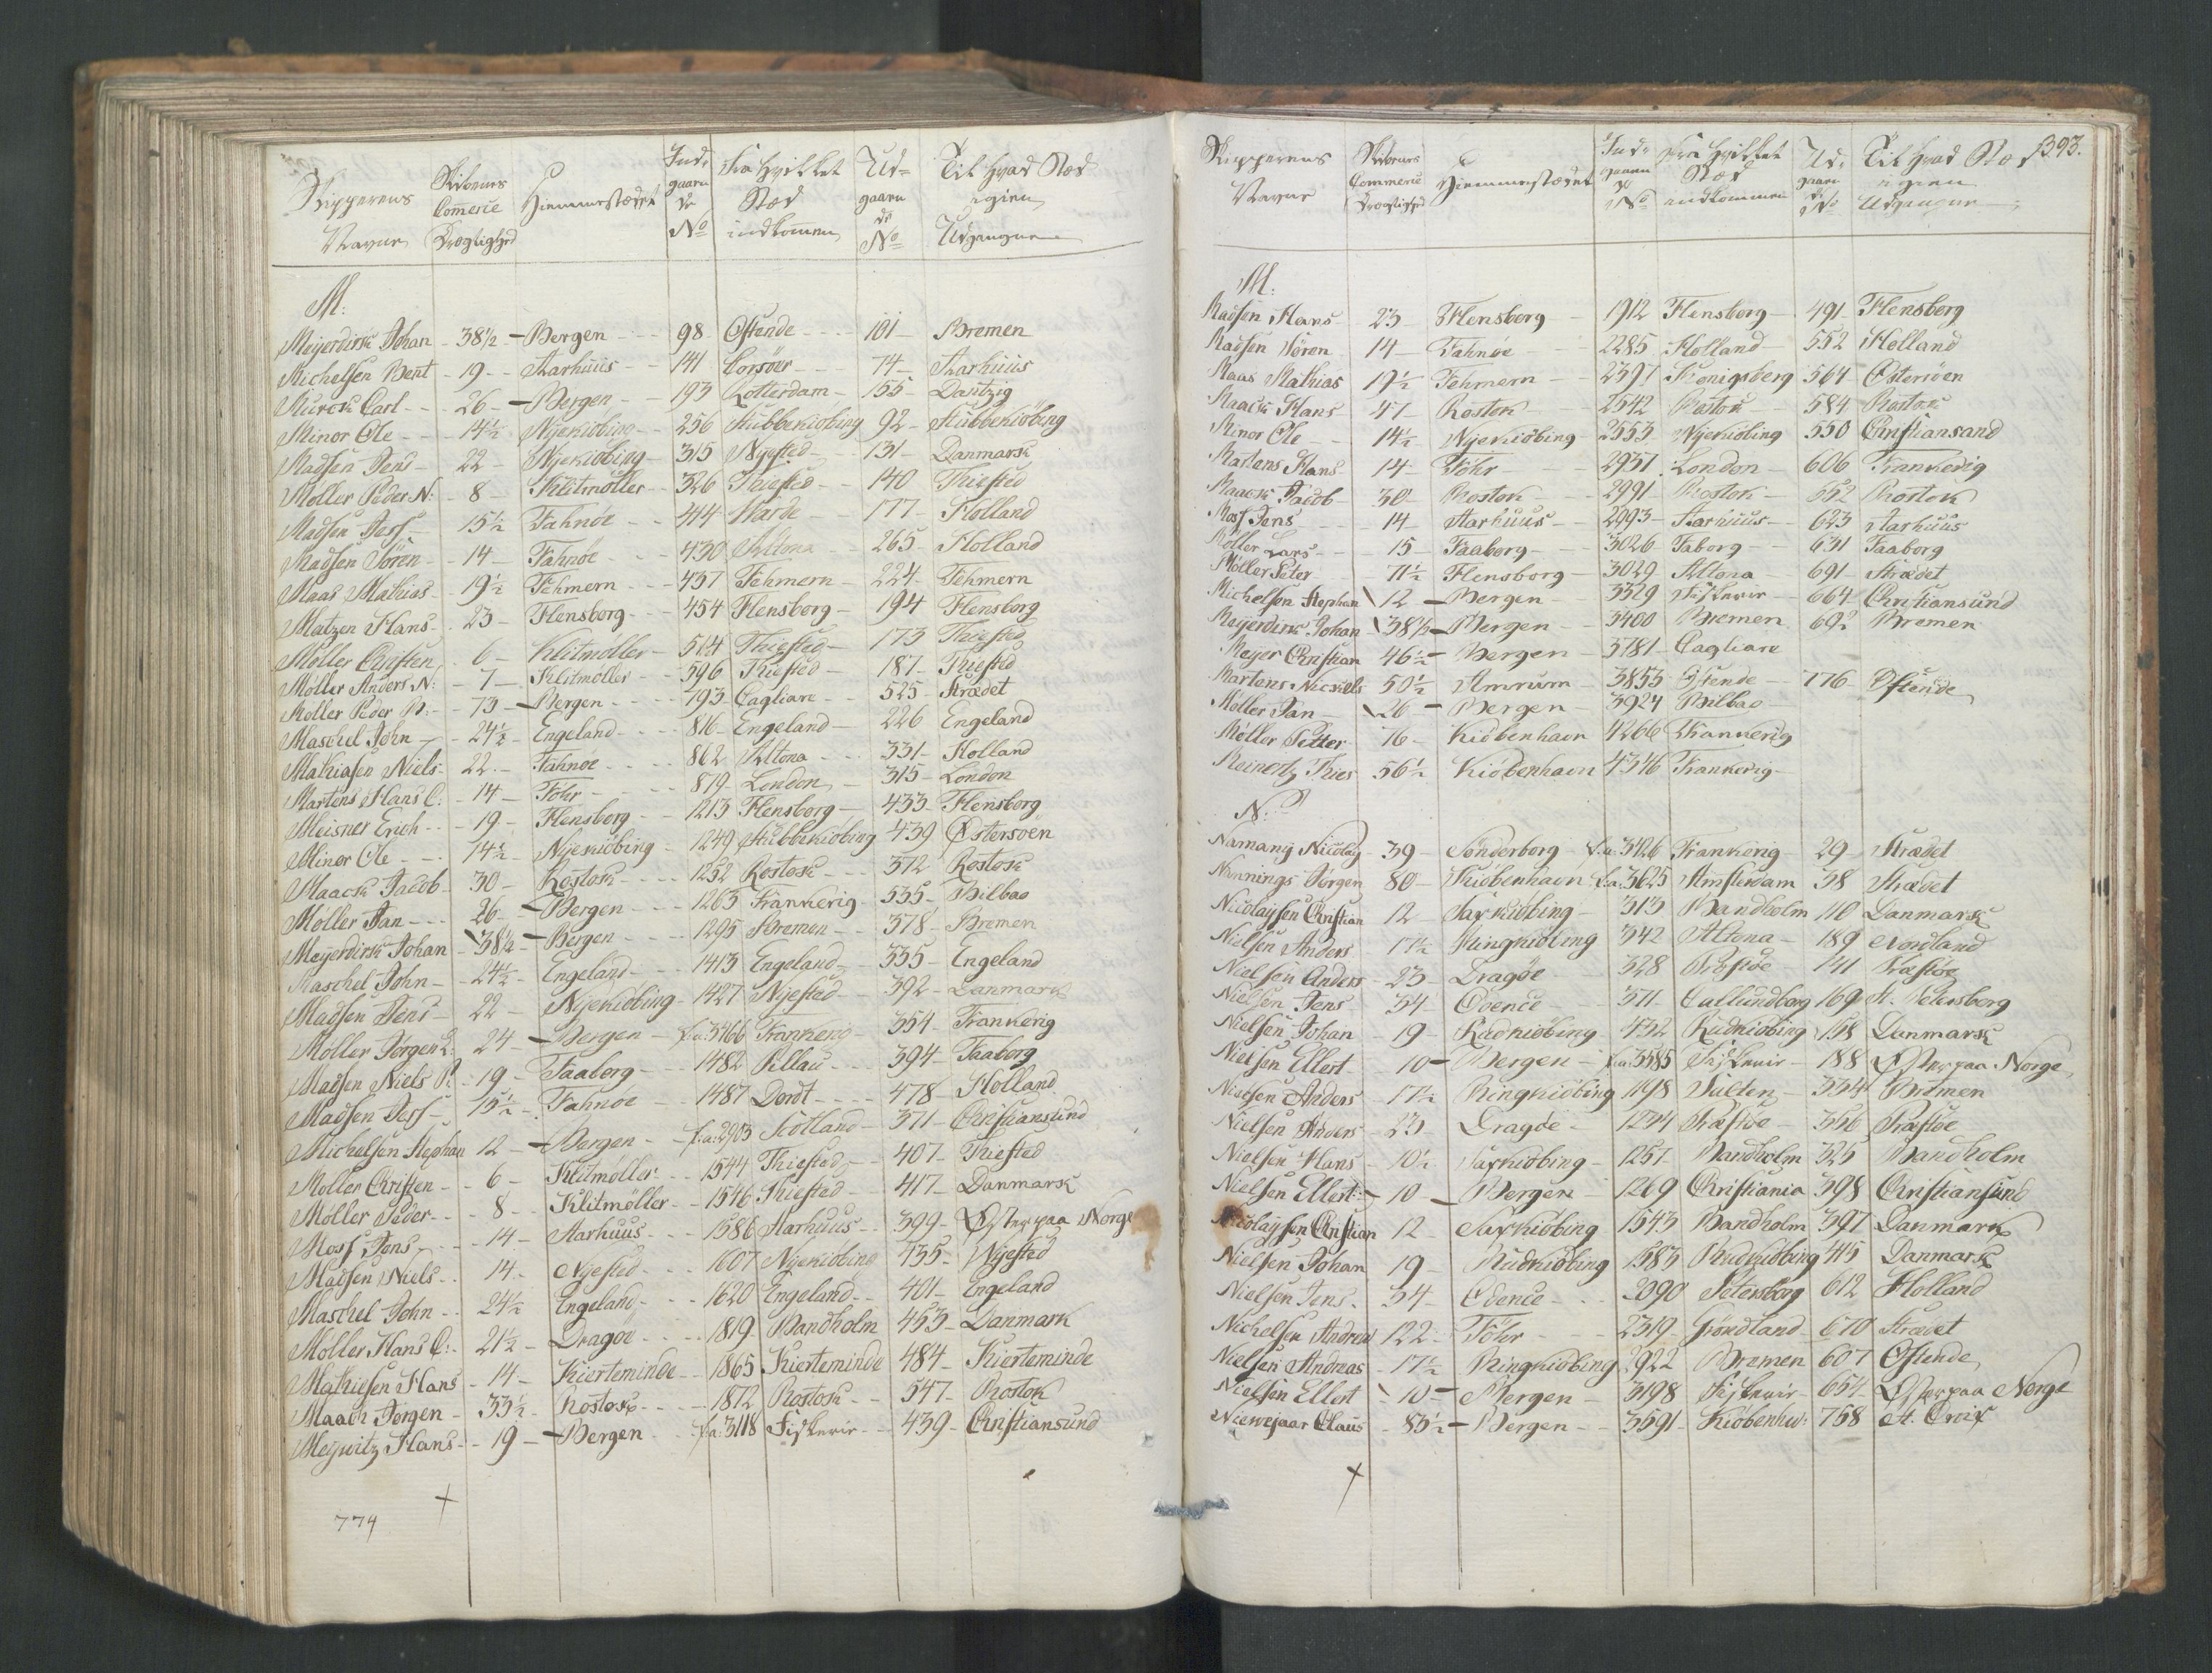 Skipperens Navne | Skibenes Com̄erce Drægtighed | Hiemmestædet | Indgaaende No | Fra hvilket Stæd indkom̄en | Udgaaende No | Til hvad Stæd igien Udgangne
M:
Meyerdirk Johan - 38½ - Bergen - 98 Ostende - 101 - Bremen
Michelsen Bent - 19 - Aarhuus - 141 Corsöer - 74 - Aarhuus
Murck Carl - 26 - Bergen - 193 Rotterdam - 155 - Dantzig
Minor Ole - 14½ Nyekiöbing - 256 Stubbekiöbing 92 - Stubbekiöbing
Madsen Jens - 22 - Nyekiöbing - 315 Nysted - 131 - Danmark
Möller Peder N: - 8 - Klitmöller - 326 Thiested - 140 Thiested
Madsen Jess - 15½ Fahnöe - 414 Warde - 177 - Holland
Madsen Sören - 14 - Fahnöe - 430 Altona - 265 - Holland
Maas Mathias - 19½ Fehmern - 437 Fehmern - 224 - Fehmern
Matzen Hans - 23 - Flensborg - 454 Flensborg - 194 Flensborg
Møller Christen 6 - Klitmøller - 514 Thiested - 173 Thiested
Møller Anders N: - 7 - Klitmøller - 596 Thiested - 187 - Thiested
Møller Peder P: - 73 - Bergen - 793 Cagliare - 525 - Strædet
Maschel John - 24½ - Engeland - 816 - Engeland - 226 Engeland
Mathiasen Niels - 22 - Fahnöe - 862 Altona - 331 - Holland
Martens Hans C: - 14 - Föhr - 879 - London - 315 - London
Meisner Erich - 19 - Flensborg - 1213 Flensborg - 433 - Flensborg
Minor Ole - 14½ - Nyekiöbing - 1249 Stubbekiöbing 439 Østersoen
Maack Jacob - 30 - Rostok - 1252 Rostok - 372 Rostok
Møller Jan - 26 - Bergen - 1263 Frankerig - 535 - Bilbao
Meyerdirk Johan - 38½ - Bergen - 1295 Bremen - 378 - Bremen
Maschel John - 24½ - Engeland - 1413 Engeland - 335 - Engeland
Madsen Jens - 22 - Nyekiöbing - 1427 Nysted - 392 - Danmark
Möller Jörgen L: 24 - Bergen - f:a: 3466 Frankerig - 354 - Frankerig
Madsen Niels P: - 19 - Faaborg - 1482 Pillau - 394 - Faaborg
Madsen Jess - 15½ - Fahnöe - 1487 Dordt - 478 - Holland
Michelsen Stephan 12 - Bergen - f:a: 2903 Skotland - 371 - Christiansund
Møller Christen - 6 - Klitmøller - 1544 Thiested - 407 - Thiested
Møller Peder - 8 - Klitmöller - 1546 Thiested - 417 - Danmark
Moss Jens - 14 - Aarhuus - 1586 Aarhuus - 399 - Øster paa Norge
Madsen Niels - 14 - Nyested - 1607 Nyekiöbing 435 - Nyested
Maschel John - 24½ Engeland - 1620 Engeland - 401 - Engeland
Møller Hans C: - 21½ - Dragöe - 1819 Bandholm 463 - Danmark
Mathiesen Hans - 14 - Kierteminde - 1865 Kierteminde 484 - Kierteminde
Maack Jørgen - 33½ - Rostok - 1872 Rostok - 547 - Rostok
Meywitz Hans - 19 - Bergen - f:a: 3118 Fiskerie - 439 - Christiansund
774
393.
Skipperens Navne | Skibenes Commerce Drægtighed | Hiemmestædet | Indgaaende No | Fra hvilket Stæd indkommen | Udgaaende No | Til hvad Stæd igien Udgangne
M:
Madsen Hans 23 - Flensborg - 1912 Flensborg - 491 Flensborg
Madsen Sören 14 - Fahnöe - 2285 Holland - 552 Holland
Maas Mathias 19½ Fehmern - 2397 Konigsberg 564 - Östersöen
Maack Hans 47 - Rostok - 2542 Rostok - 584 Rostok
Minor Ole - 14½ Nyekiöbing - 2553 Nyekiöbing 550 Christiansand
Martens Hans 14 - Föhr - 2957 London - 606 Frankerig
Maack Jacob 30 - Rostok - 2991 Rostok - 652 Rostok
Moss Jens 14 - Aarhuus - 2993 - Aarhuus - 623 Aarhuus
Möller Lars - 15 - Faaborg - 3026 - Faborg - 631 Faaborg
Møller Peter 71½ Flensborg - 3029 Altona - 691 - Strædet
Michelsen Stephan 12 - Bergen - 3329 Fiskerie - 664 - Christiansund
Meyerdirk Johan 38½ - Bergen - 3400 Bremen 692 Bremen
Meyer Christian 46½ - Bergen - 3781 - Cagliare
Martens Nickels 50½ Amrum - 3853 Ostende - 776 Ostende
Møller Jan 26 - Bergen - 3924 Bilbao
Møller Petter 16 - Kiöbenhavn 4266 Frankerig
Meinertz Thies 56½ Kiöbenhavn 4346 Frankerig
N:
Namany Nicolay 39 - Sönderborg f:a: 3426 Frankerig 29 - Strædet
Nunnings Jörgen 80 - Kiöbenhavn f:a: 3625 Amsterdam 38 Strædet
Nicolaysen Christian 12 - Saxkiöbing - 313 Bandholm 110 Danmark
Nielsen Anders 17½ Ringkiöbing 342 Altona - 189 Nordland
Nielsen Anders - 23 - Dragöe 328 Præstöe - 141 Præstöe
Nielsen Jens 34 - Odence - 371 - Callundborg 169 St. Petersborg
Nielsen Johan 19 - Rudkiöbing 432 Rudkiobing 158 Danmark
Nielsen Ellert 10 - Bergen - f:a: 3585 Fiskerie - 188 Øster paa Norge
Nielsen Anders - 17½ Ringkiöbing 1198 - 334 Bremen
Nielsen Anders - 23 - Dragöe - 1234 Præstöe - 356 Præstöe
Nielsen Hans - 10½ Saxkiöbing - 1257 Bandholm 325 Bandholm
Nielsen Ellert - 10 - Bergen - 1269 Christiania 398 Christiansund
Nicolaysen Christian 12 - Saxkiöbing 1543 Bandholm 397 Danmark
Nielsen Johan 19 - Rudkiöbing 1583 Rudkiöbing 415 Danmark
Nielsen Jens 34 - Odence - 2090 Petersborg 612 Holland
Nickelsen Andreas 122 - Föhr - 2319 Grönland - 670 Strædet
Nielsen Andreas - 17½ Ringkiöbing 2922 Bremen 607 Ostende
Nielsen Ellert 10 - Bergen - 3198 Fiskerie - 654 Øster paa Norge
Niewejaar Claus - 83½ - Bergen - 3591 Kiöbenhv: 758 St. Croix